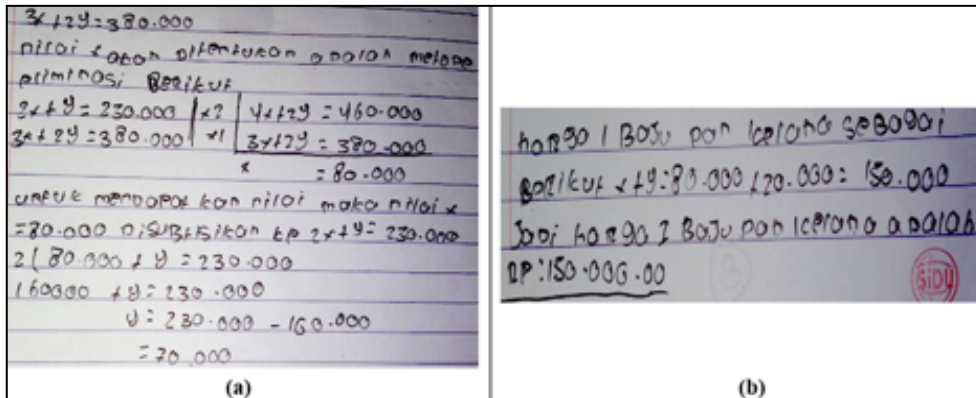 3x+2y=380.000
nilai x akan ditentukan adalah metode
eliminasi Berikut
2x+y=230.000 | x2 | 4x+2y=460.000
3x+2y=380.000 | x1 | 3x+2y=380.000
x = 80.000
untuk mendapat kan nilai maka nilai x
=80.000 disubtisikan ke 2x+y=230.000
2(80.000+y=230.000
160000+y=230.000
y=230.000-160.000
=70.000
(a)
harga 1 Baju dan lcelana sebagai
Berikut x+y=80.000+20.000=150.000
Jadi harga 1 Baju dan lcelana adalah
RP:150.000.00
SiDU
(b)